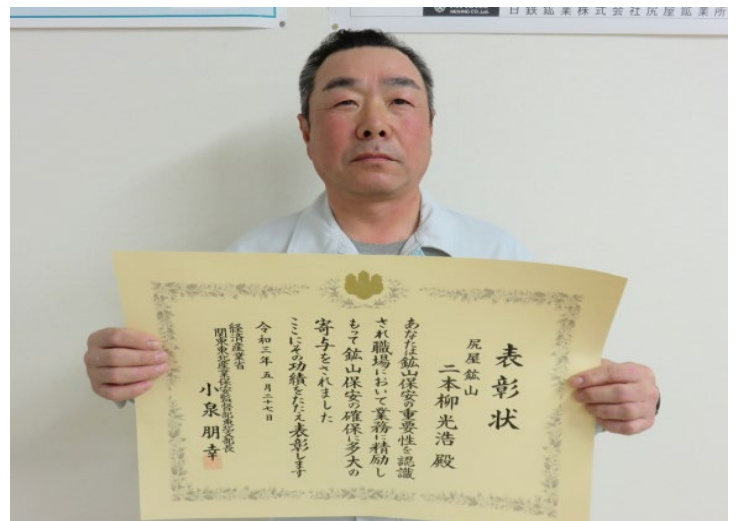 日鉄鉱業株式会社尻屋鉱業所
表彰状
尻屋鉱山
二本柳光浩 殿
あなたは鉱山保安の重要性を認識
され職場において業務に精励し
もって鉱山保安の確保に多大の
寄与をされました
ここにその功績をたたえ表彰します
令和三年五月二十七日
経済産業省
関東東北産業保安監督部東北支部長
小泉朋幸